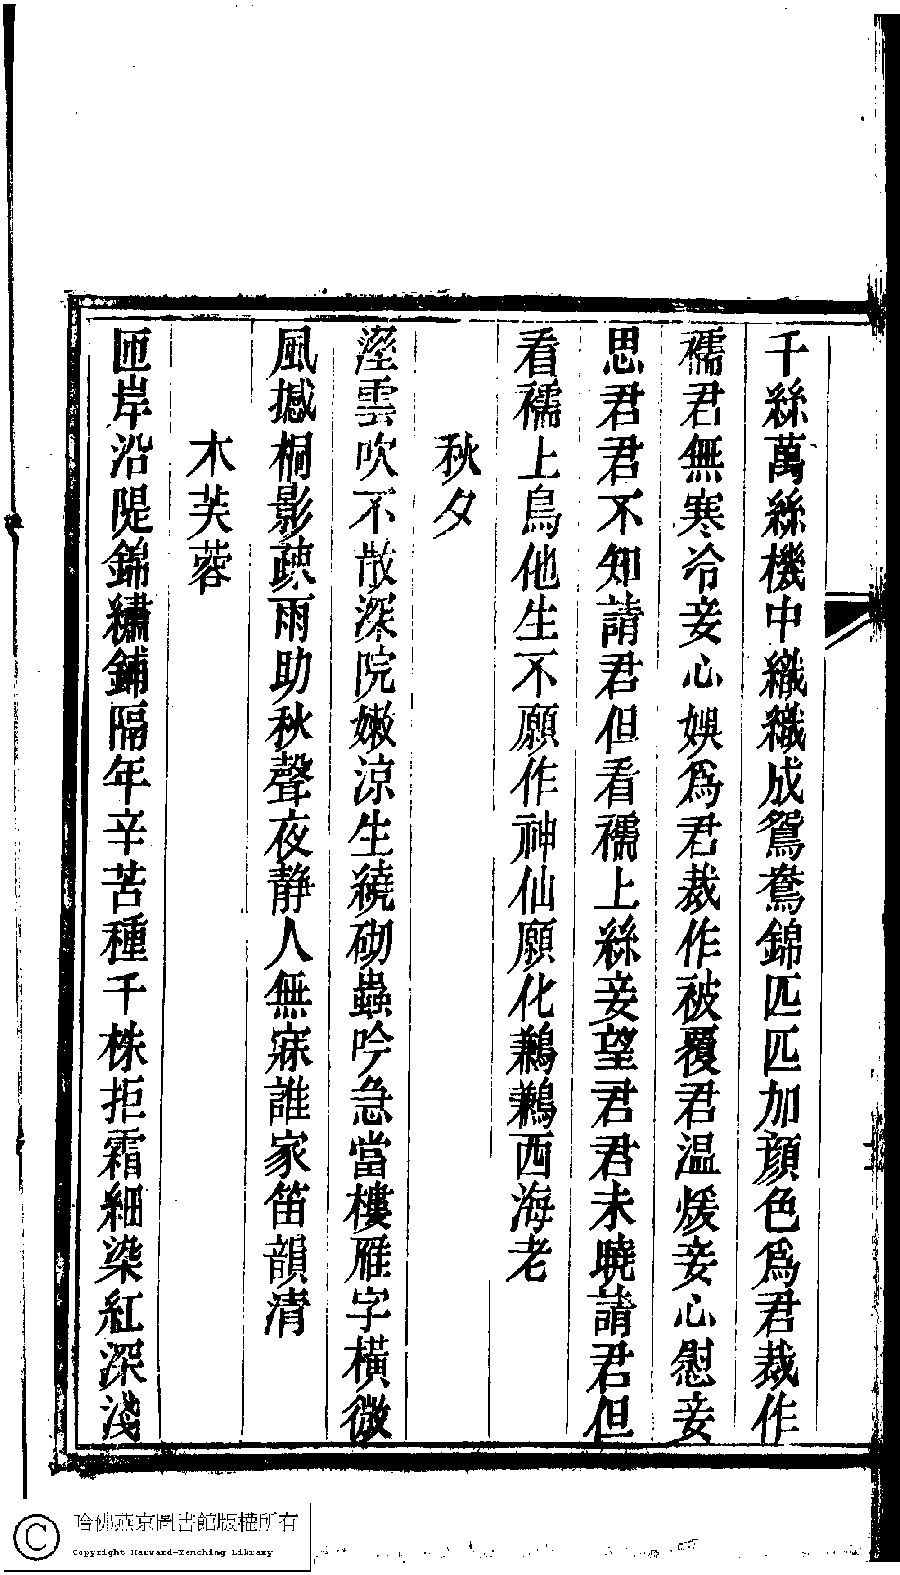 千絲萬絲機中織織成鴛鴦錦匹匹加顔色爲君裁作
襦君無寒冷妾心娛爲君裁作被覆君温煖妾心慰妾
思君君不知請君但看襦上絲妾望君君未曉請君但
看襦上鳥他生不願作神仙願化鶼鶼西海老
秋夕
溼雲吹不散深院嫩涼生繞砌蟲吟急當樓雁字橫微
風撼桐影疎雨助秋聲夜静人無寐誰家笛韻清
木芙蓉
匝岸沿隄錦繡鋪隔年辛苦種千株拒霜細染紅深淺
哈佛燕京圖書館版權所有
Copyright Harvard-Yenching Library